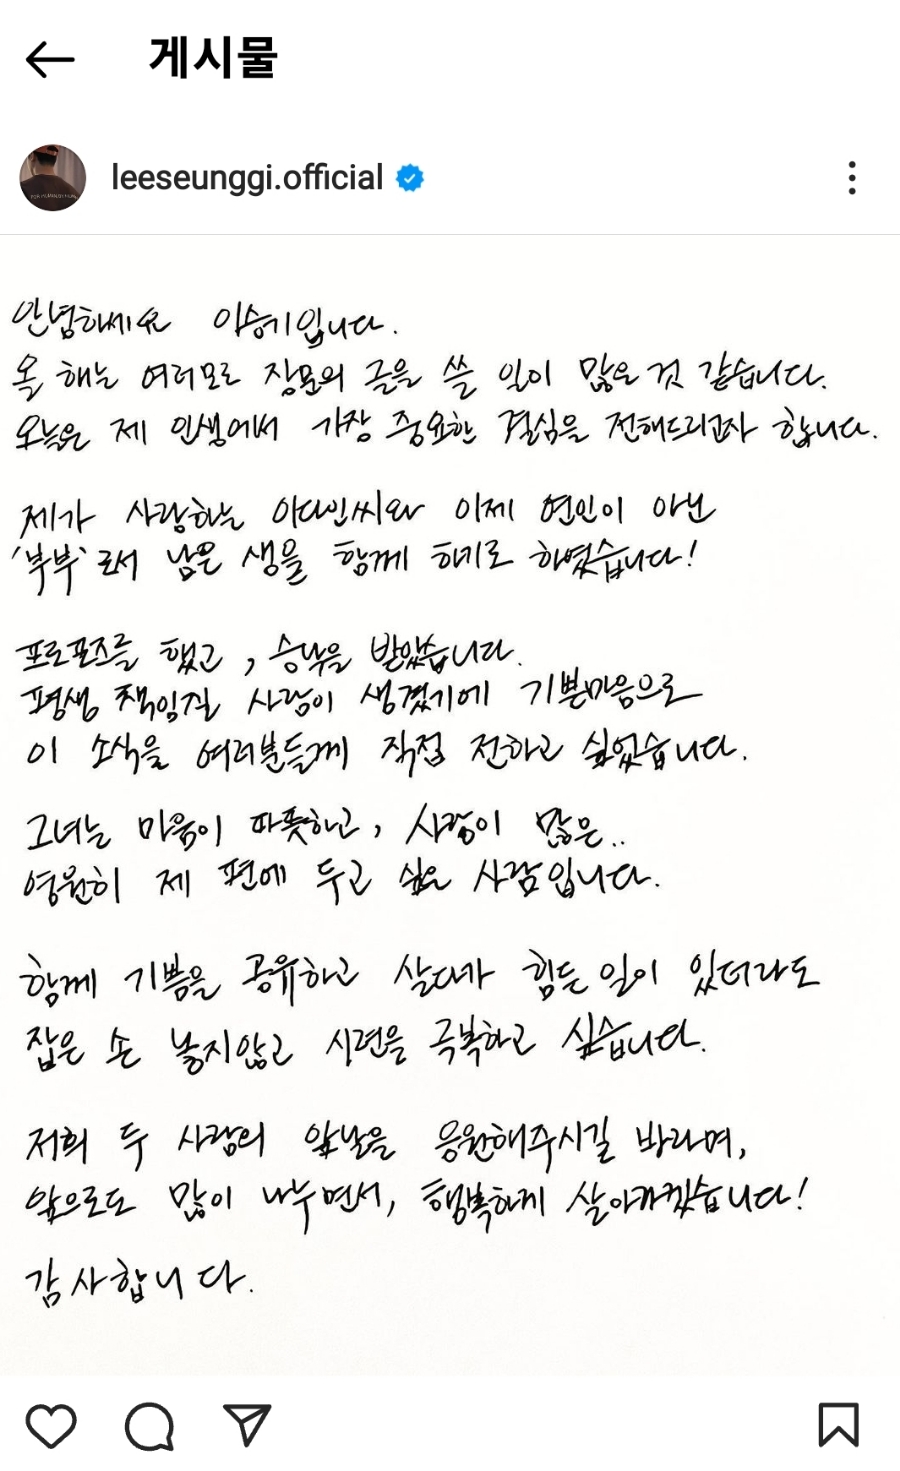 게시물
leeseunggi.official
안녕하세요 이승기입니다.
올 해는 여러모로 장문의 글을 쓸 일이 많은 것 같습니다.
오늘은 제 인생에서 가장 중요한 결심을 전해드리고자 합니다.
제가 사랑하는 이다인씨와 이제 연인이 아닌
'부부'로서 남은 생을 함께 하기로 하였습니다!
프로포즈를 했고, 승낙을 받았습니다.
평생 책임질 사람이 생겼기에 기쁜마음으로
이 소식을 여러분들께 직접 전하고 싶었습니다.
그녀는 마음이 따뜻하고, 사랑이 많은..
영원히 제 편에 두고 싶은 사람입니다.
함께 기쁨을 공유하고 살다가 힘든 일이 있더라도
잡은 손 놓지않고 시련을 극복하고 싶습니다.
저희 두 사람의 앞날을 응원해주시길 바라며,
앞으로도 많이 나누면서, 행복하게 살아가겠습니다!
감사합니다.